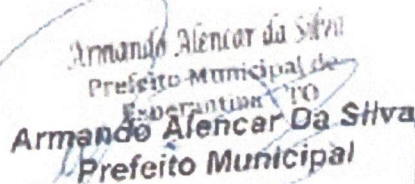 Armando Alencar da Silva
Prefeito Municipal de
Esperantina TO
Armando Alencar Da Silva
Prefeito Municipal